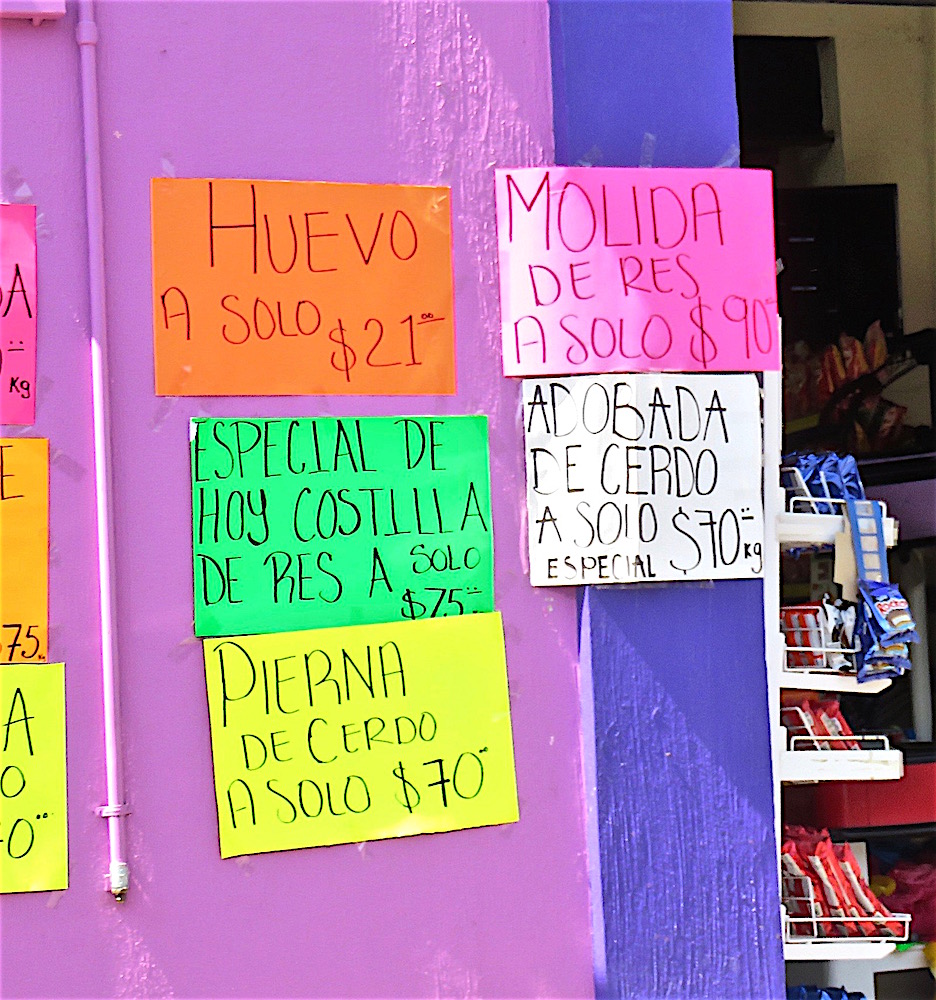 HUEVO
A SOLO $21.00
MOLIDA
DE RES
A SOLO $90
ADOBADA
DE CERDO
A SOLO $70.00 Kg
ESPECIAL
ESPECIAL DE
HOY COSTILLA
DE RES A SOLO
$75.00
PIERNA
DE CERDO
A SOLO $70.00
A
Kg
E
75.
A
O
0.00